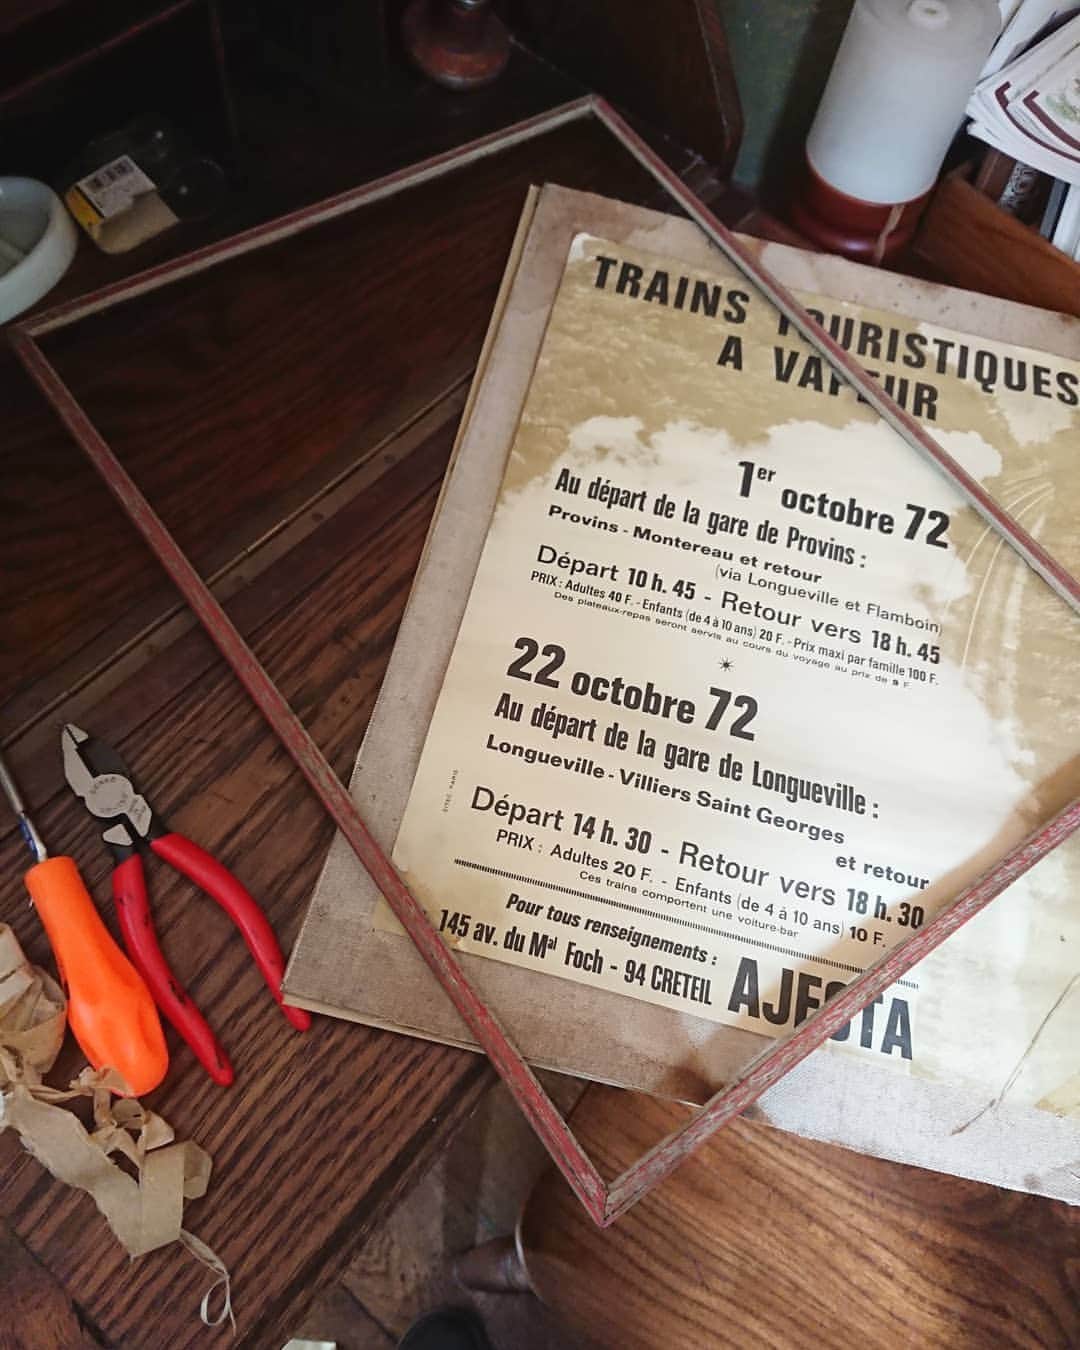 TRAINS TOURISTIQUES
A VAPEUR
1er octobre 72
Au départ de la gare de Provins :
Provins - Montereau et retour
(via Longueville et Flamboin)
Départ 10 h. 45 - Retour vers 18 h. 45
PRIX : Adultes 40 F. - Enfants (de 4 à 10 ans) 20 F. - Prix maxi par famille 100 F.
Des plateaux-repas seront servis au cours du voyage au prix de 9 F.
22 octobre 72
Au départ de la gare de Longueville :
Longueville - Villiers Saint Georges
et retour
Départ 14 h. 30 - Retour vers 18 h. 30
PRIX : Adultes 20 F. - Enfants (de 4 à 10 ans) 10 F.
Ces trains comportent une voiture-bar
Pour tous renseignements :
145 av. du Mal Foch - 94 CRETEIL
AJECTA